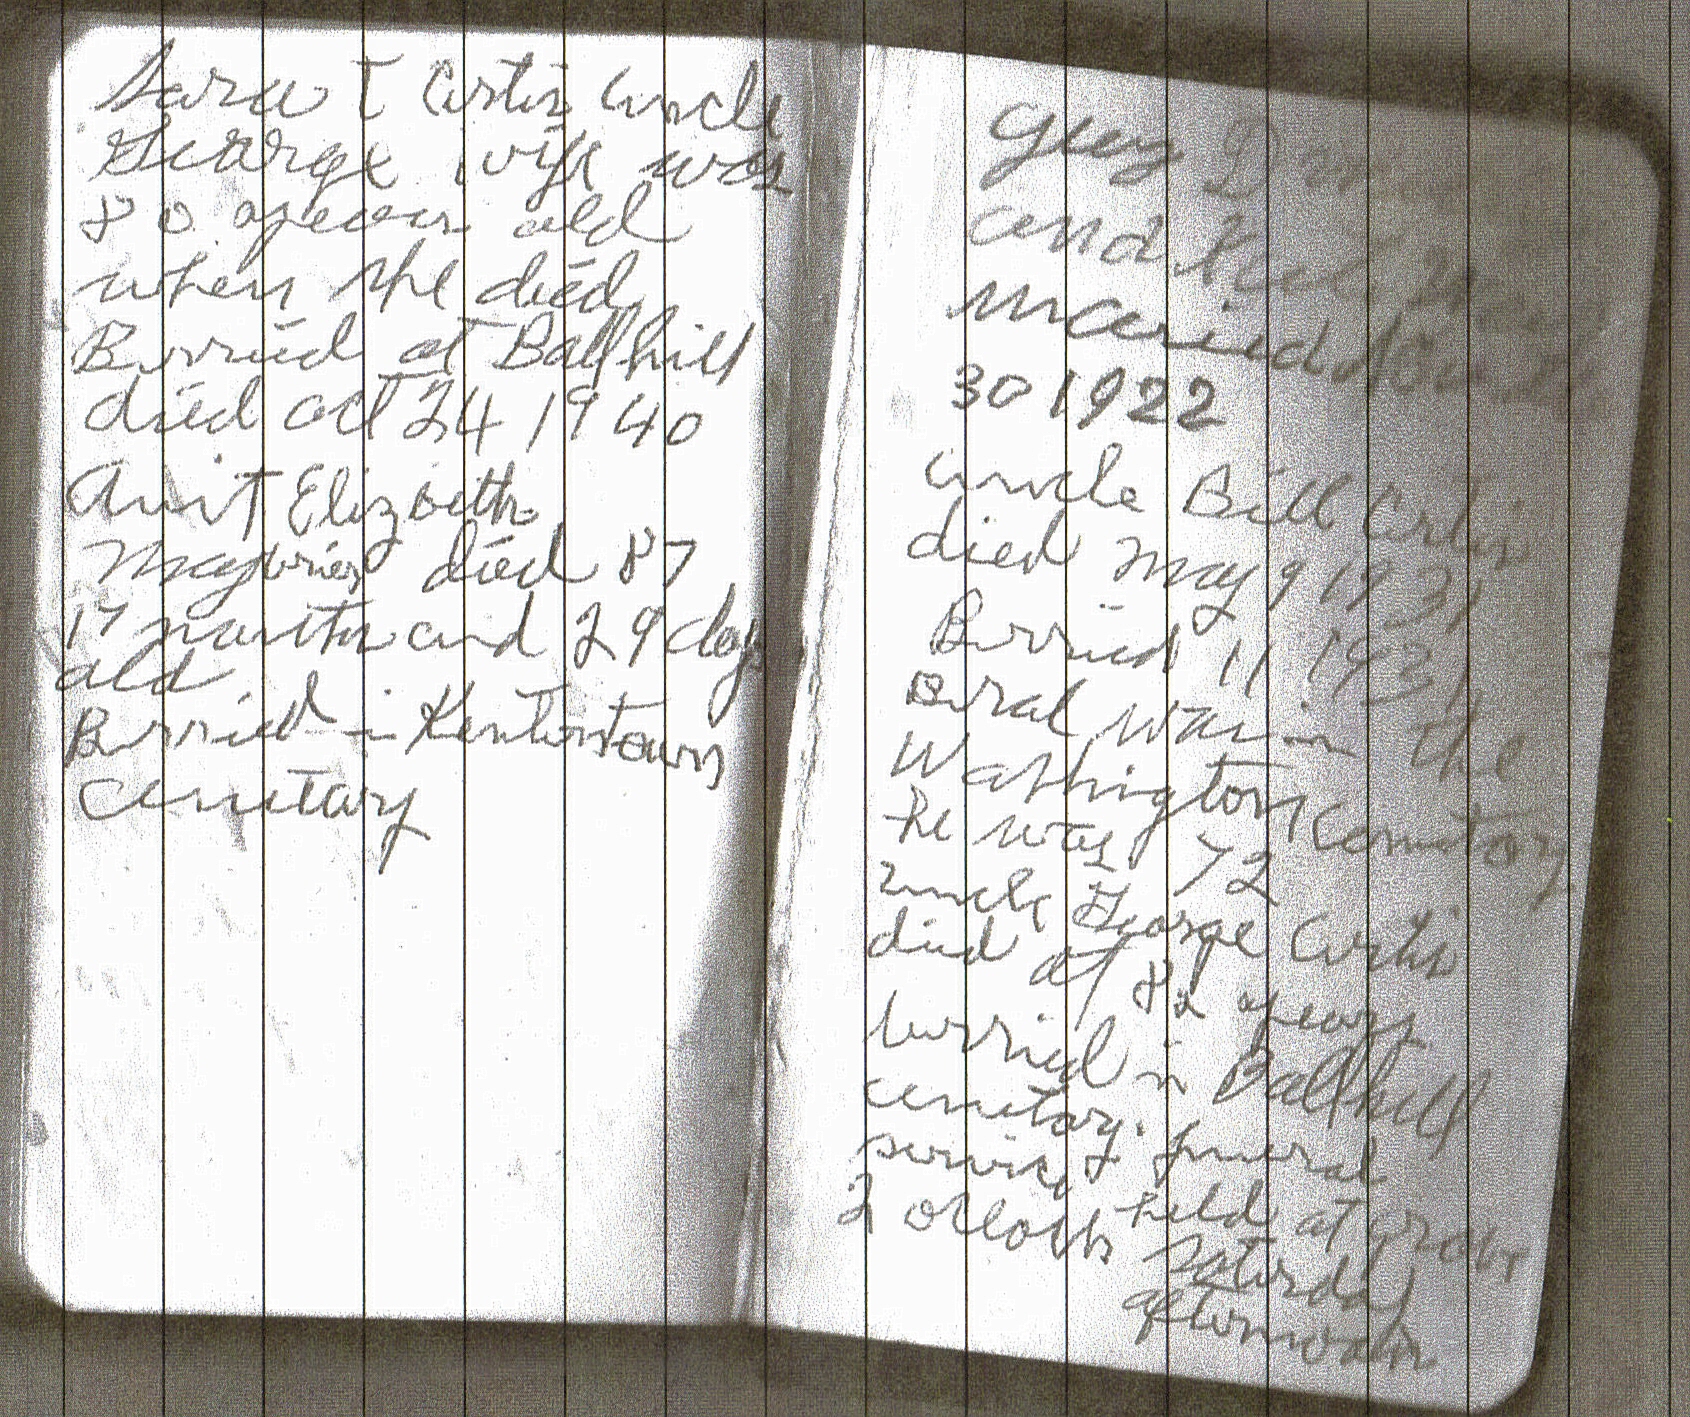 Sara E Curtis uncle
George wife was
80 years old
when she died
Burried at Ballhill
died oct 24 1940
Aunt Elizbeth
died 87
17 months and 29 days
old
Burried in Kentontown
cemetary
Guy
and
maried
30 1922
uncle Bill Curtis
died may 9 1931
Burried 11 1931
in the
Washington Cemetary
he was 72
uncle George Curtis
died at 82 years
burried in Ballhill
cemetary. funeral
service held at grave
2 oclock Saturday
afternoon